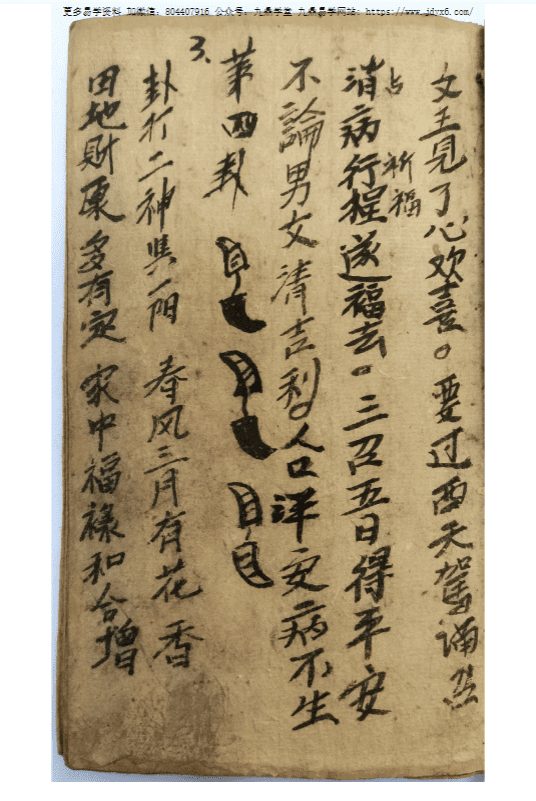 更多易学资料 加微信：804407916 公众号：九鼎学堂 九鼎易学网站：https://www.jdyx6.com/
文王見了心欢喜。要过西天駕诵经
占 祈福
消病行程遂福去。三召五日得平安
不論男女清吉利。人口洋安病不生
3、
第四卦
卦行二神與一阳 春风三月有花香
田地财 多有定 家中福祿和合增